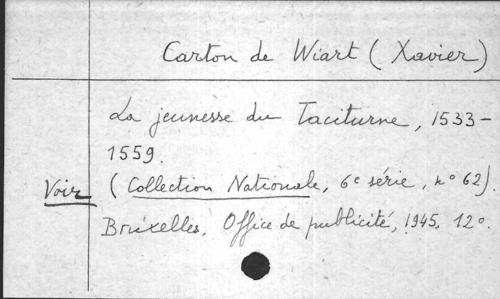 Carton de Wiart (Xavier)
La jeunesse du Taciturne, 1533-
1559.
Voir (Collection Nationale, 6e série, n° 62).
Bruxelles, Office de publicité, 1945, 12°.